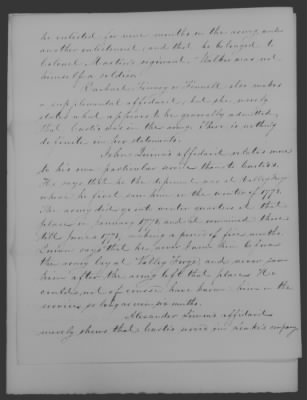 he enlisted for nine months in the army, under
another enlistment, and that he belonged to
Colonel Martin's regiment. Walker was not
himself a soldier.
Rachael Finney or Finnell, also makes
a supplemental affidavit, but she merely
states what appears to be generally admitted,
that Curtis was in the army. There is nothing
definite in her statements.
John Quinn's affidavit relates more
to his own particular service than to Curtis's.
He says that he the deponent was at valley Forge
where he first saw him in the winter of 1778.
The army did go into winter quarters at that
place in January 1778, and it remained there
till June 1778, being a period of five months.
Quinn says that he never knew him to leave
the army lay at Valley Forge, and never saw
him after the army left that place. He
could not, of course, have known him in the
service so long as even six months.
Alexander Quinn's affidavit
merely shows that Curtis served in company